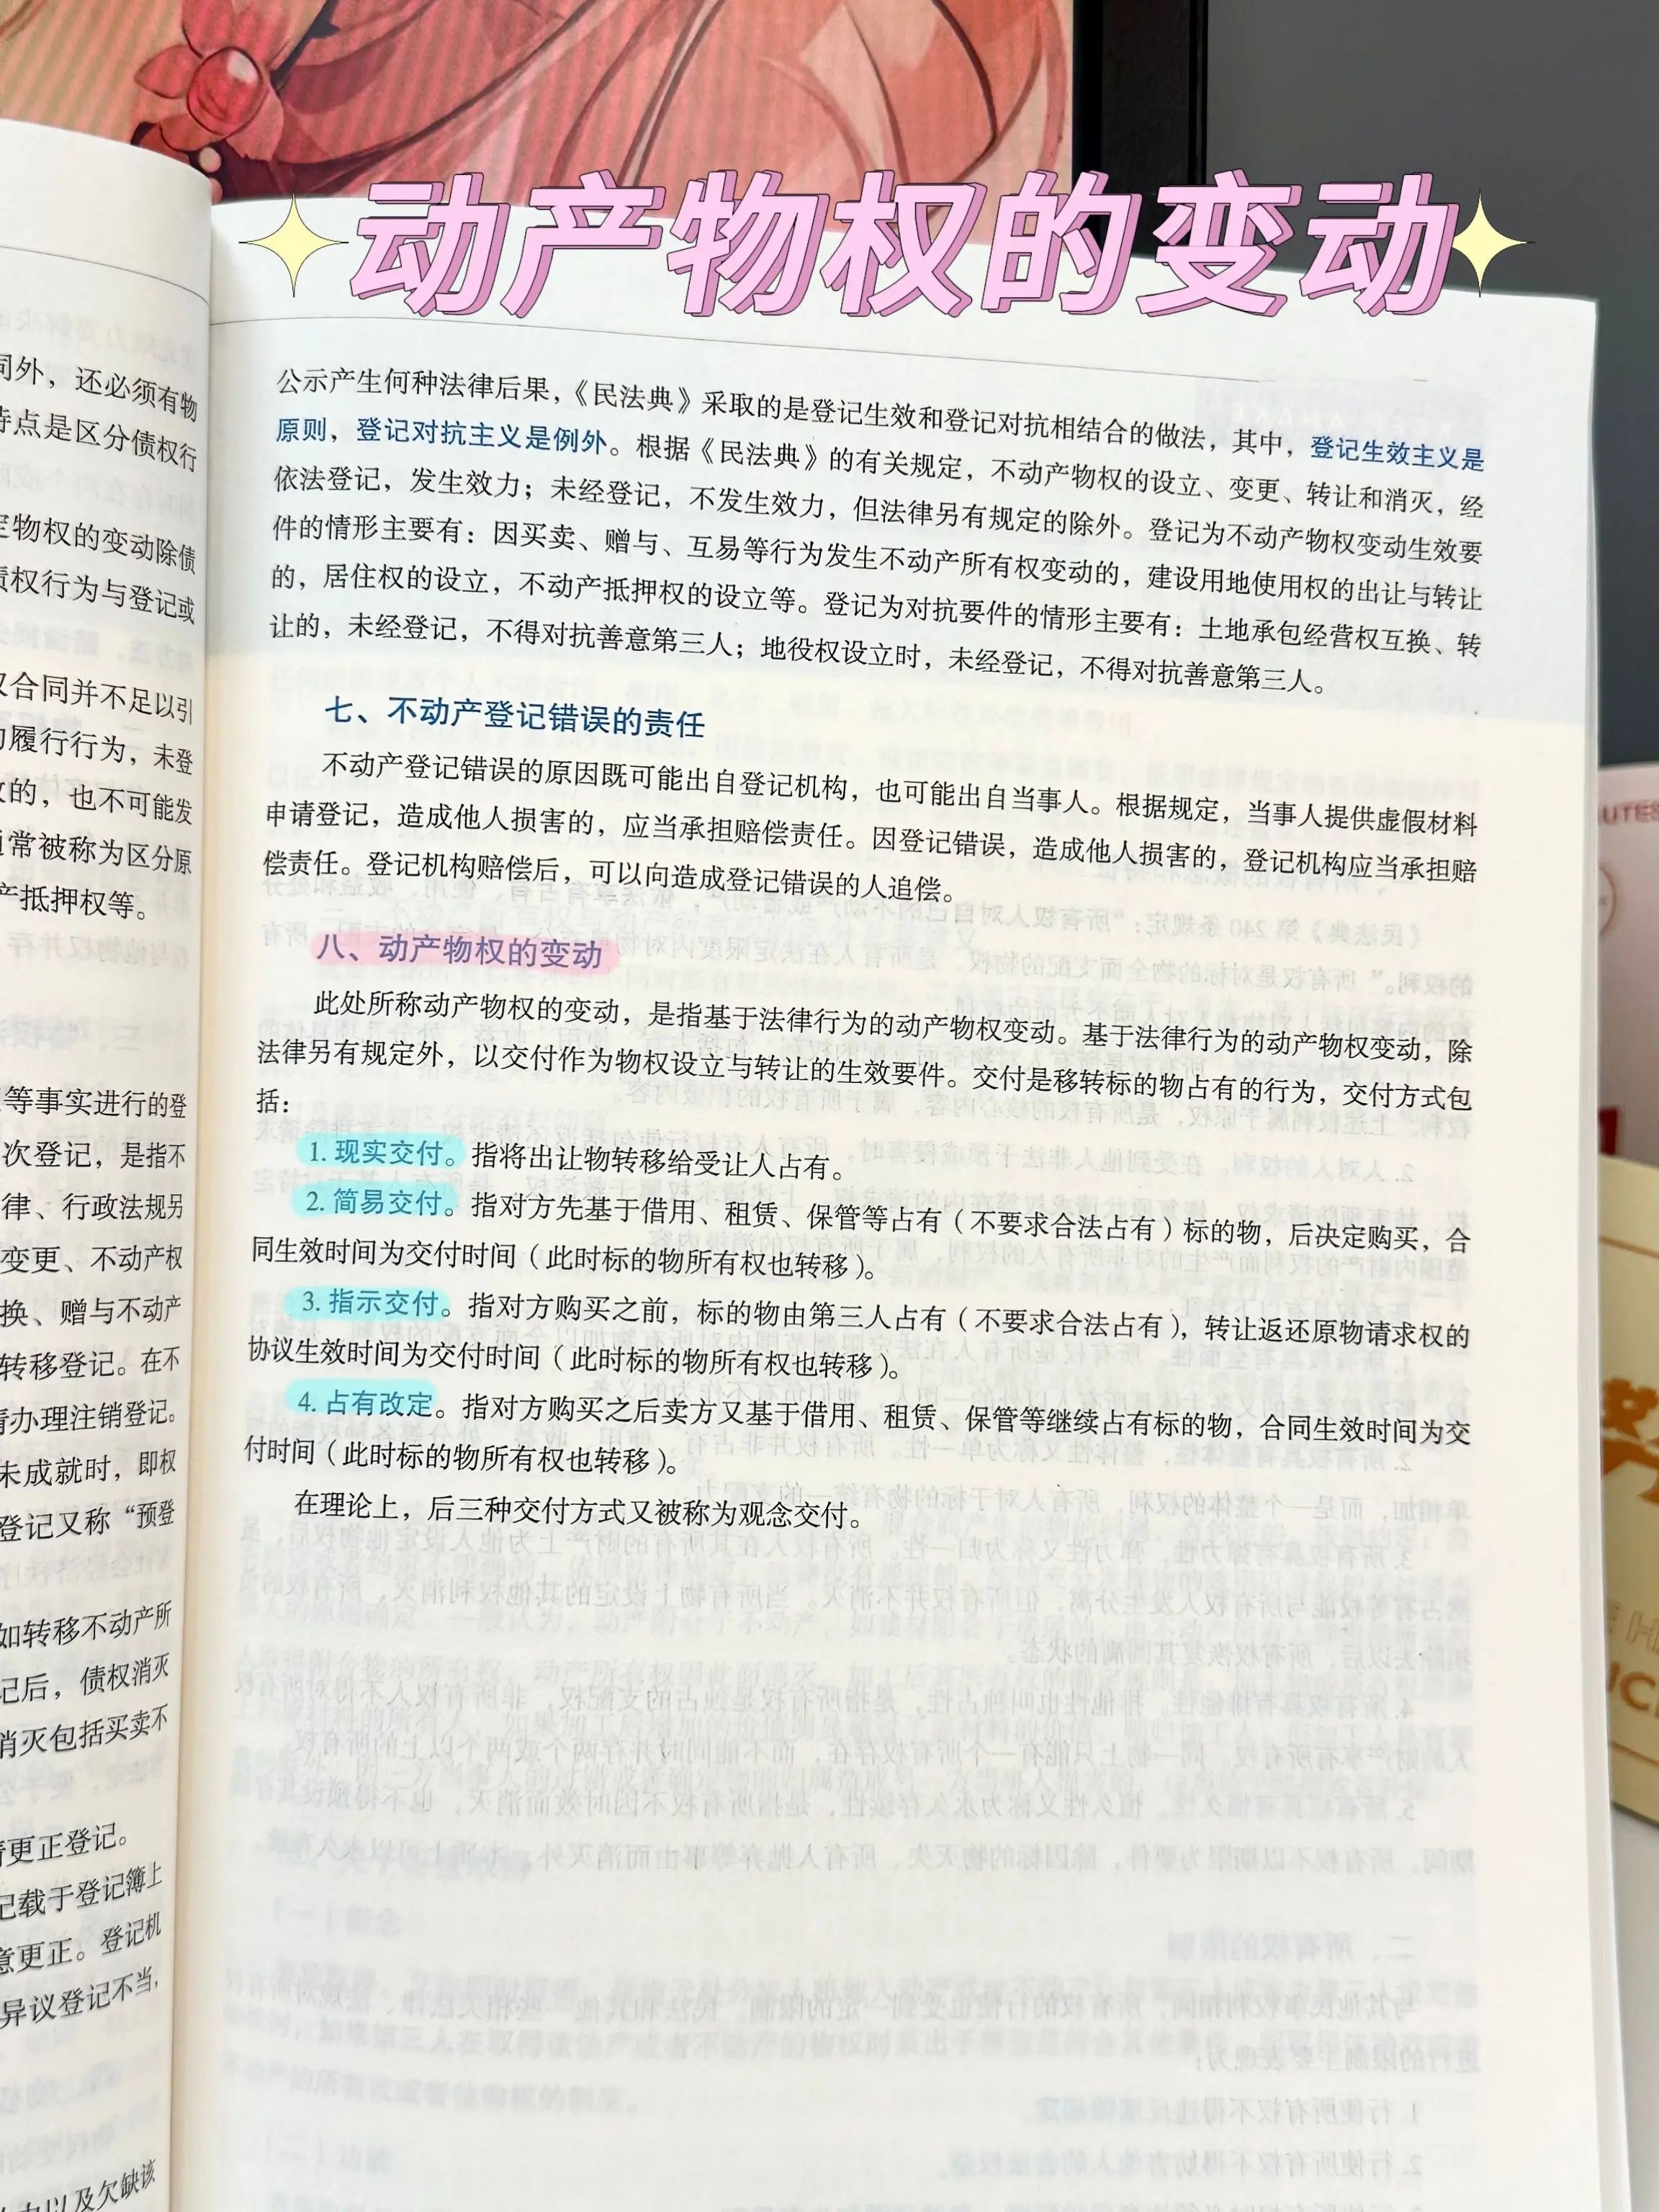 动产物权的变动
同外，还必须有物
特点是区分债权行
定物权的变动除债
债权行为与登记或
合同并不足以引
履行行为，未登
的，也不可能发
通常被称为区分原
产抵押权等。
等事实进行的登
次登记，是指不
律、行政法规另
变更、不动产权
换、赠与不动产
转移登记。在不
请办理注销登记。
未成就时，即权
登记又称“预登
如转移不动产所
记后，债权消灭
消灭包括买卖不
请更正登记。
记载于登记簿上
意更正。登记机
异议登记不当，
以及欠缺该
公示产生何种法律后果，《民法典》采取的是登记生效和登记对抗相结合的做法，其中，登记生效主义是
原则，登记对抗主义是例外。根据《民法典》的有关规定，不动产物权的设立、变更、转让和消灭，经
依法登记，发生效力；未经登记，不发生效力，但法律另有规定的除外。登记为不动产物权变动生效要
件的情形主要有：因买卖、赠与、互易等行为发生不动产所有权变动的，建设用地使用权的出让与转让
的，居住权的设立，不动产抵押权的设立等。登记为对抗要件的情形主要有：土地承包经营权互换、转
让的，未经登记，不得对抗善意第三人；地役权设立时，未经登记，不得对抗善意第三人。
七、不动产登记错误的责任
不动产登记错误的原因既可能出自登记机构，也可能出自当事人。根据规定，当事人提供虚假材料
申请登记，造成他人损害的，应当承担赔偿责任。因登记错误，造成他人损害的，登记机构应当承担赔
偿责任。登记机构赔偿后，可以向造成登记错误的人追偿。
八、动产物权的变动
此处所称动产物权的变动，是指基于法律行为的动产物权变动。基于法律行为的动产物权变动，除
法律另有规定外，以交付作为物权设立与转让的生效要件。交付是移转标的物占有的行为，交付方式包
括：
1. 现实交付。指将出让物转移给受让人占有。
2. 简易交付。指对方先基于借用、租赁、保管等占有（不要求合法占有）标的物，后决定购买，合
同生效时间为交付时间（此时标的物所有权也转移）。
3. 指示交付。指对方购买之前，标的物由第三人占有（不要求合法占有），转让返还原物请求权的
协议生效时间为交付时间（此时标的物所有权也转移）。
4. 占有改定。指对方购买之后卖方又基于借用、租赁、保管等继续占有标的物，合同生效时间为交
付时间（此时标的物所有权也转移）。
在理论上，后三种交付方式又被称为观念交付。